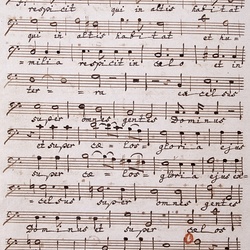 respicit qui in altis habitat
qui in altis habitat et hu-
milia respicit in celo et in
terra excelsis
super omnes gentes Dominus
et super celos gloria ejus
et super celos gloria ejus ex-
celsus super omnes gentes
Dominus et super celos